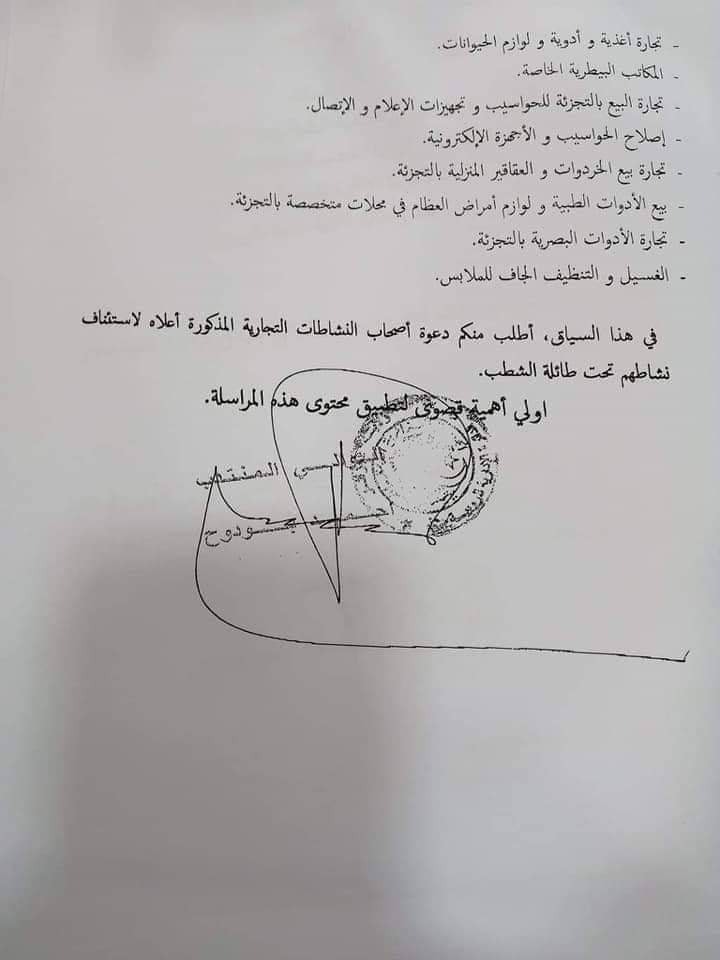 - تجارة أغذية و أدوية و لوازم الحيوانات.
- المكاتب البيطرية الخاصة.
- تجارة البيع بالتجزئة للحواسيب و تجهيزات الإعلام و الإتصال.
- إصلاح الحواسيب و الأجهزة الإلكترونية.
- تجارة بيع الخردوات و العقاقير المنزلية بالتجزئة.
- بيع الأدوات الطبية و لوازم أمراض العظام في محلات متخصصة بالتجزئة.
- تجارة الأدوات البصرية بالتجزئة.
- الغسيل و التنظيف الجاف للملابس.
في هذا السياق، أطلب منكم دعوة أصحاب النشاطات التجارية المذكورة أعلاه لاستئناف
نشاطهم تحت طائلة الشطب.
اولي أهمية قصوى لتطبيق محتوى هذه المراسلة.
الوالي المنتدب